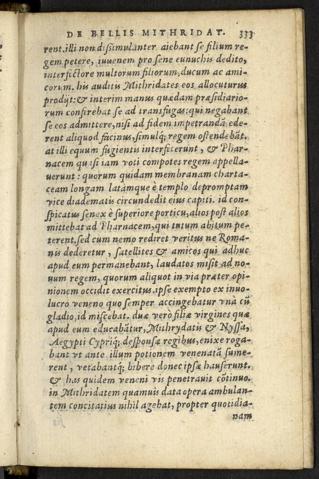 DE BELLIS MITHRIDAT. 333
rent. illi non dißimulanter aiebant se filium re-
gem petere, iuuenem pro sene eunuchis dedito,
interfectore multorum filiorum, ducum ac ami-
corum. his auditis Mithridates eos allocuturus
prodijt: & interim manus quædam præsidiario-
rum consirebat se ad transfugas: qui negabant
se eos admittere, nisi ad fidem impetrandā ede-
rent aliquod facinus, simulq; regem ostendebāt.
at illi equum fugientis interfecerunt, & Phar-
nacem quasi iam voti compotes regem appella-
uerunt: quorum quidam membranam charta-
ceam longam latamque è templo depromptam
vice diadematis circundedit eius capiti. id con-
spicatus senex è superiore porticu, alios post alios
mittebat ad Pharnacem, qui tutum abitum pe-
terent, sed cum nemo rediret veritus ne Roma-
nis dederetur, satellites & amicos qui adhuc
apud eum permanebant, laudatos misit ad no-
uum regem, quorum aliquot in via præter opi-
nionem occidit exercitus. ipse exempto ex inuo-
lucro veneno quo semper accingebatur vnà cū
gladio, id miscebat. duæ verò filiæ virgines quæ
apud eum educabātur, Mithrydatis & Nyssa,
Aegypti Cypriq; desponsæ regibus, enixe roga-
bant vt ante illum potionem venenatā sume-
rent, vetabantq; bibere donec ipsæ hauserunt.
& has quidem veneni vis penetrauit cōtinuo.
in Mithridatem quamuis data opera ambulan-
tem concitatius nihil agebat, propter quotidia-
nam